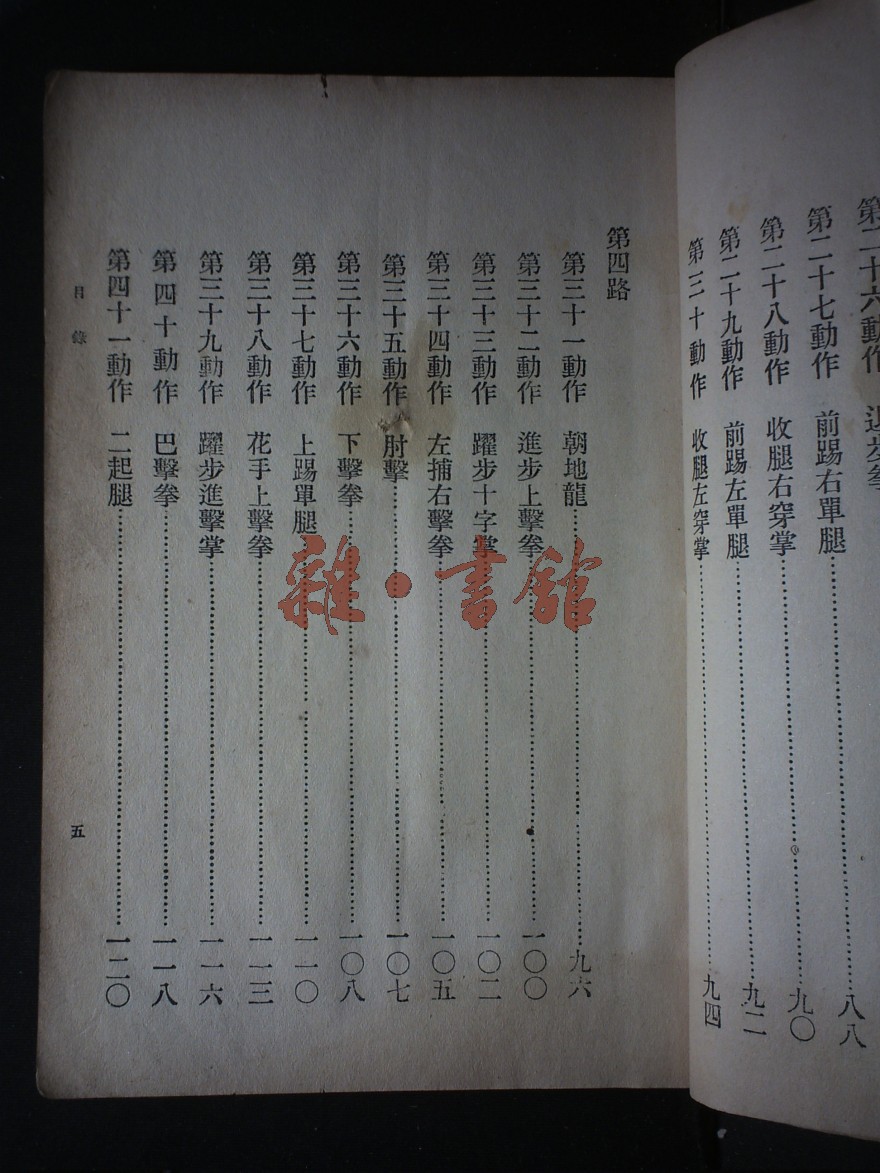 第二十六動作 退步拳
第二十七動作 前踢右單腿……八八
第二十八動作 收腿右穿掌……九〇
第二十九動作 前踢左單腿……九二
第三十動作 收腿左穿掌……九四
第四路
第三十一動作 朝地龍……九六
第三十二動作 進步上擊拳……一〇〇
第三十三動作 躍步十字掌……一〇二
第三十四動作 左捕右擊拳……一〇五
第三十五動作 肘擊……一〇七
第三十六動作 下擊拳……一〇八
第三十七動作 上踢單腿……一一〇
第三十八動作 花手上擊拳……一一三
第三十九動作 躍步進擊掌……一一六
第四十動作 巴擊拳……一一八
第四十一動作 二起腿……一二〇
目錄
五
雜·書館